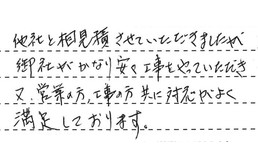 他社と相見積させていただきましたが
御社がかなり安く工事をやっていただき
又、営業の方、工事の方共に対応がよく
満足しております。